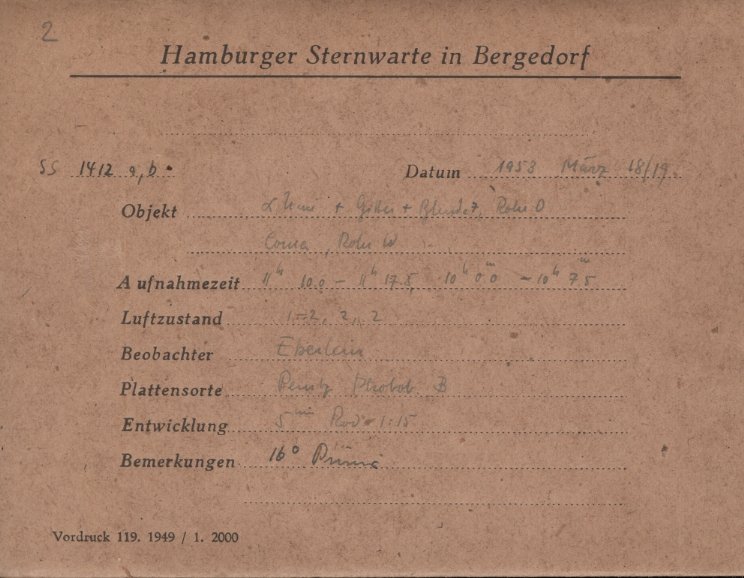 2
Hamburger Sternwarte in Bergedorf
SS 1412 a, b
Datum 1958 März 18/19.
Objekt + Gitter + Blende 7, Rohr O
Coma, Rohr W
Aufnahmezeit 11h 10.0 – 11h 17.5, 10h 0.0m – 10h 7.5m
Luftzustand 1–2, 2, 2
Beobachter
Plattensorte Perutz B
Entwicklung 5min Rod. 1:15
Bemerkungen 16° Prima
Vordruck 119. 1949 / 1. 2000